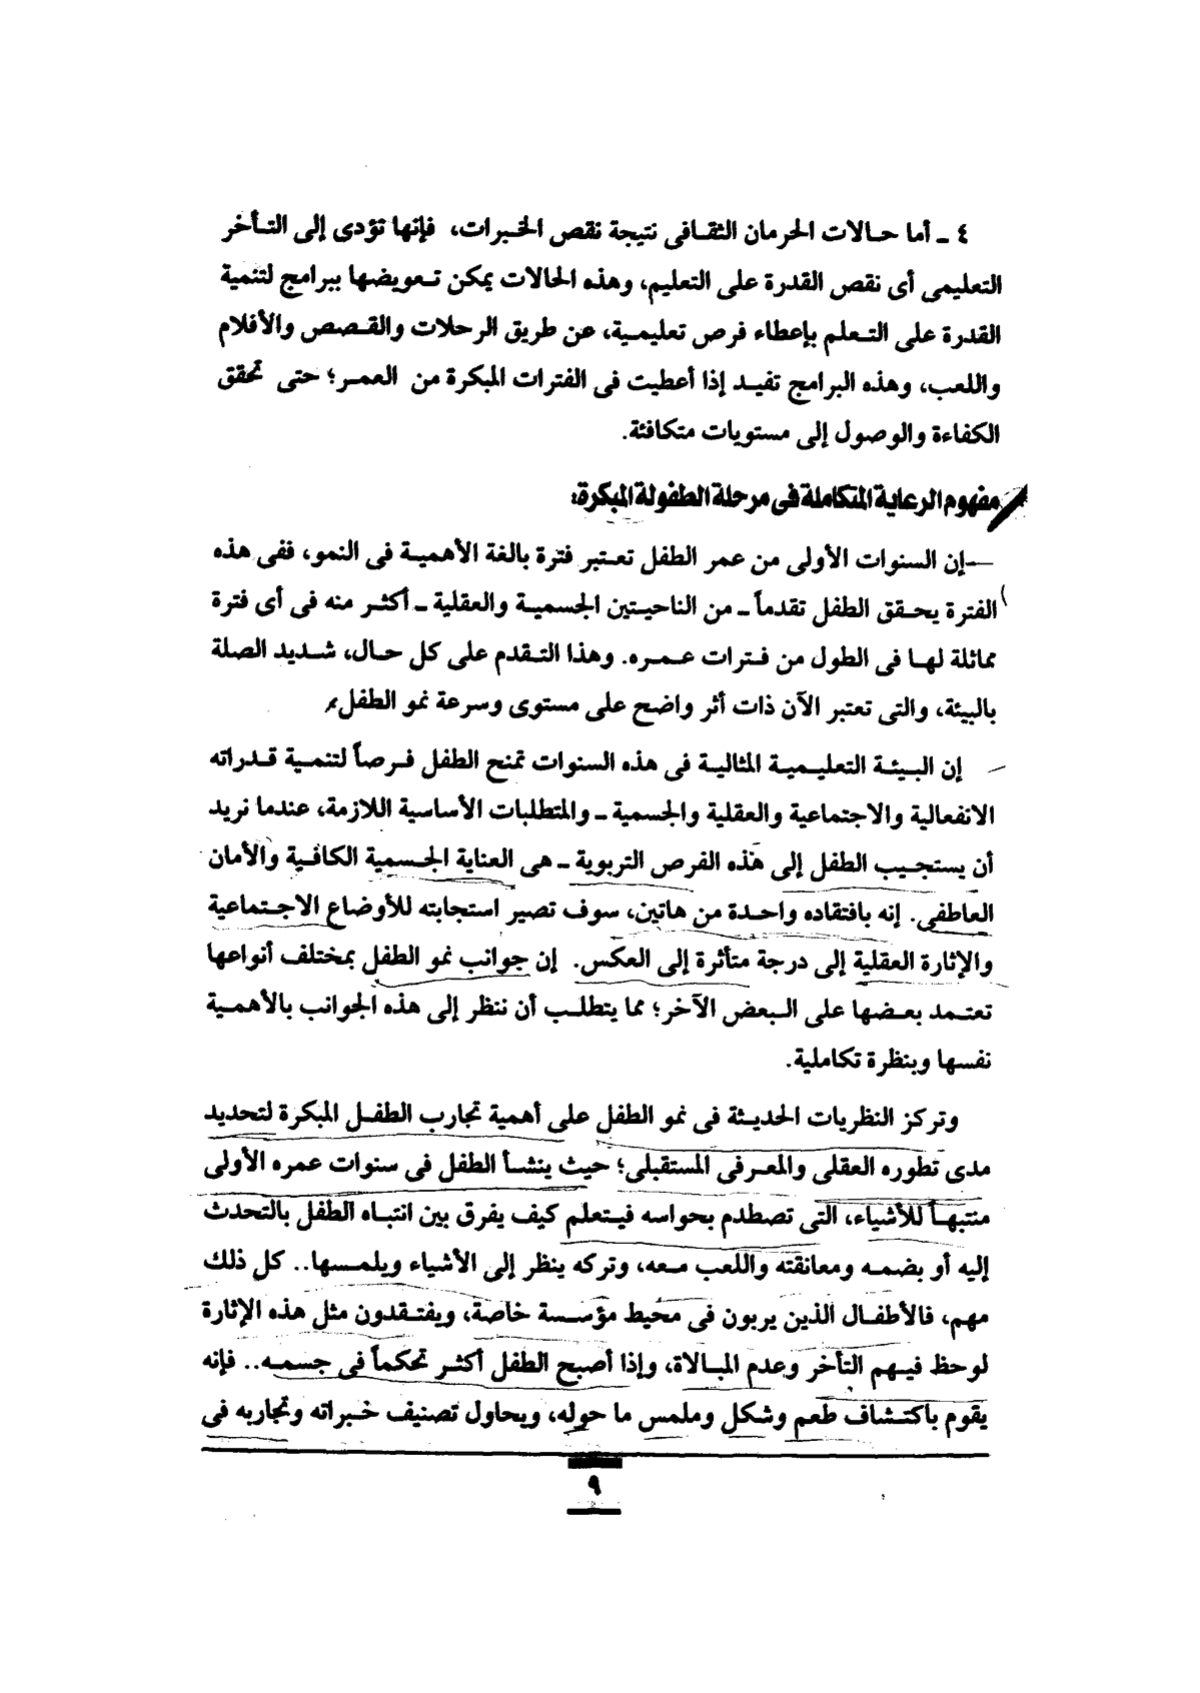 ٤ ـ أما حالات الحرمان الثقافى نتيجة نقص الخبرات، فإنها تؤدى إلى التأخر
التعليمى أى نقص القدرة على التعليم، وهذه الحالات يمكن تعويضها ببرامج لتنمية
القدرة على التعلم بإعطاء فرص تعليمية، عن طريق الرحلات والقصص والأفلام
واللعب، وهذه البرامج تفيد إذا أعطيت فى الفترات المبكرة من العمر؛ حتى تحقق
الكفاءة والوصول إلى مستويات متكافئة.
مفهوم الرعاية المتكاملة فى مرحلة الطفولة المبكرة:
إن السنوات الأولى من عمر الطفل تعتبر فترة بالغة الأهمية فى النمو، ففى هذه
الفترة يحقق الطفل تقدماً ـ من الناحيتين الجسمية والعقلية ـ أكثر منه فى أى فترة
مماثلة لها فى الطول من فترات عمره. وهذا التقدم على كل حال، شديد الصلة
بالبيئة، والتى تعتبر الآن ذات أثر واضح على مستوى وسرعة نمو الطفل.
إن البيئة التعليمية المثالية فى هذه السنوات تمنح الطفل فرصاً لتنمية قدراته
الانفعالية والاجتماعية والعقلية والجسمية ـ والمتطلبات الأساسية اللازمة، عندما نريد
أن يستجيب الطفل إلى هذه الفرص التربوية ـ هى العناية الجسمية الكافية والأمان
العاطفى. إنه بافتقاده واحدة من هاتين، سوف تصير استجابته للأوضاع الاجتماعية
والإثارة العقلية إلى درجة متأثرة إلى العكس. إن جوانب نمو الطفل بمختلف أنواعها
تعتمد بعضها على البعض الآخر؛ مما يتطلب أن ننظر إلى هذه الجوانب بالأهمية
نفسها وبنظرة تكاملية.
وتركز النظريات الحديثة فى نمو الطفل على أهمية تجارب الطفل المبكرة لتحديد
مدى تطوره العقلى والمعرفى المستقبلى؛ حيث ينشأ الطفل فى سنوات عمره الأولى
منتبهاً للأشياء، التى تصطدم بحواسه فيتعلم كيف يفرق بين انتباه الطفل بالتحدث
إليه أو بضمه ومعانقته واللعب معه، وتركه ينظر إلى الأشياء ويلمسها.. كل ذلك
مهم، فالأطفال الذين يربون فى محيط مؤسسة خاصة، ويفتقدون مثل هذه الإثارة
لوحظ فيهم التأخر وعدم المبالاة، وإذا أصبح الطفل أكثر تحكماً فى جسمه.. فإنه
يقوم باكتشاف طعم وشكل وملمس ما حوله، ويحاول تصنيف خبراته وتجاربه فى
٩